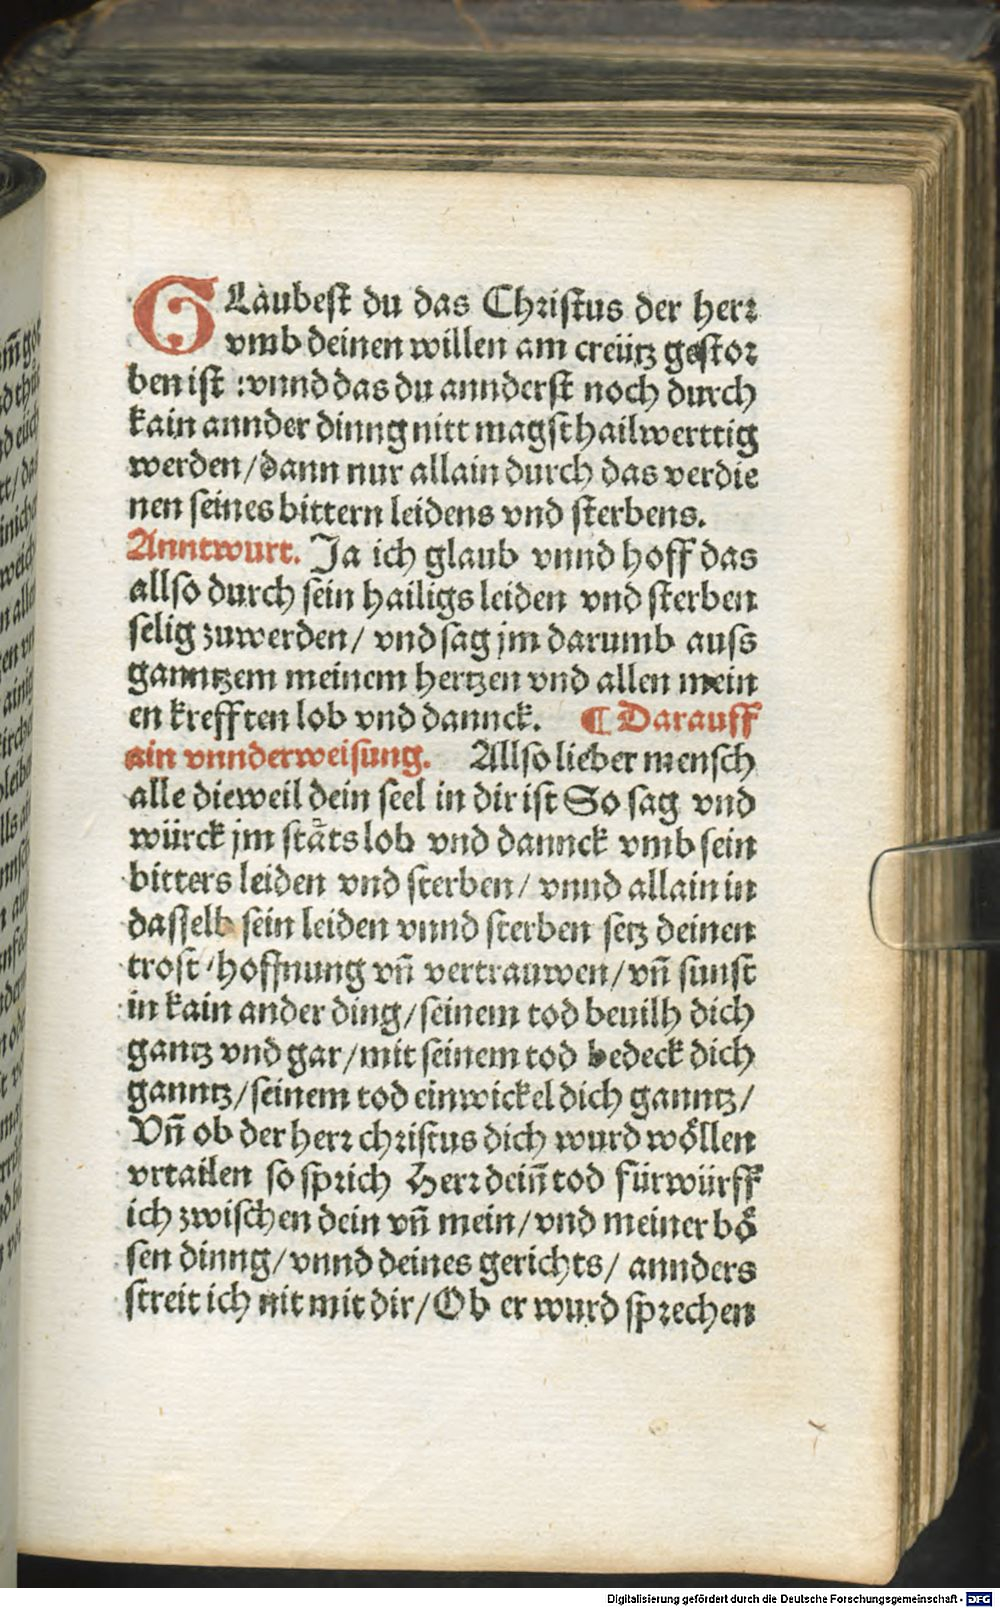 GLaubest du das Christus der herr
vmb deinen willen am creütz gestor
ben ist :vnnd das du annderst noch durch
kain annder dinng nitt magst hailwerttig
werden/dann nur allain durch das verdie
nen seines bittern leidens vnd sterbens.
Anntwurt. Ja ich glaub vnnd hoff das
allso durch sein hailigs leiden vnd sterben
selig zuwerden/ vnd sag jm darumb auss
ganntzem meinem hertzen vnd allen mein
en krefften lob vnd dannck. ¶ Darauff
ain vnnderweisung. Allso lieber mensch
alle dieweil dein seel in dir ist So sag vnd
würck jm stäts lob vnd dannck vmb sein
bitters leiden vnd sterben/ vnnd allain in
dasselb sein leiden vnnd sterben setz deinen
trost/hoffnung vñ vertrauwen/vñ sunst
in kain ander ding/seinem tod beuilh dich
gantz vnd gar/mit seinem tod bedeck dich
ganntz/seinem tod einwickel dich ganntz/
Vñ ob der herr christus dich wurd wöllen
vrtailen so sprich Herr deiñ tod fürwürff
ich zwischen dein vñ mein/vnd meiner bö
sen dinng/vnnd deines gerichts/ annders
streit ich nit mit dir/Ob er wurd sprechen
Digitalisierung gefördert durch die Deutsche Forschungsgemeinschaft - DFG